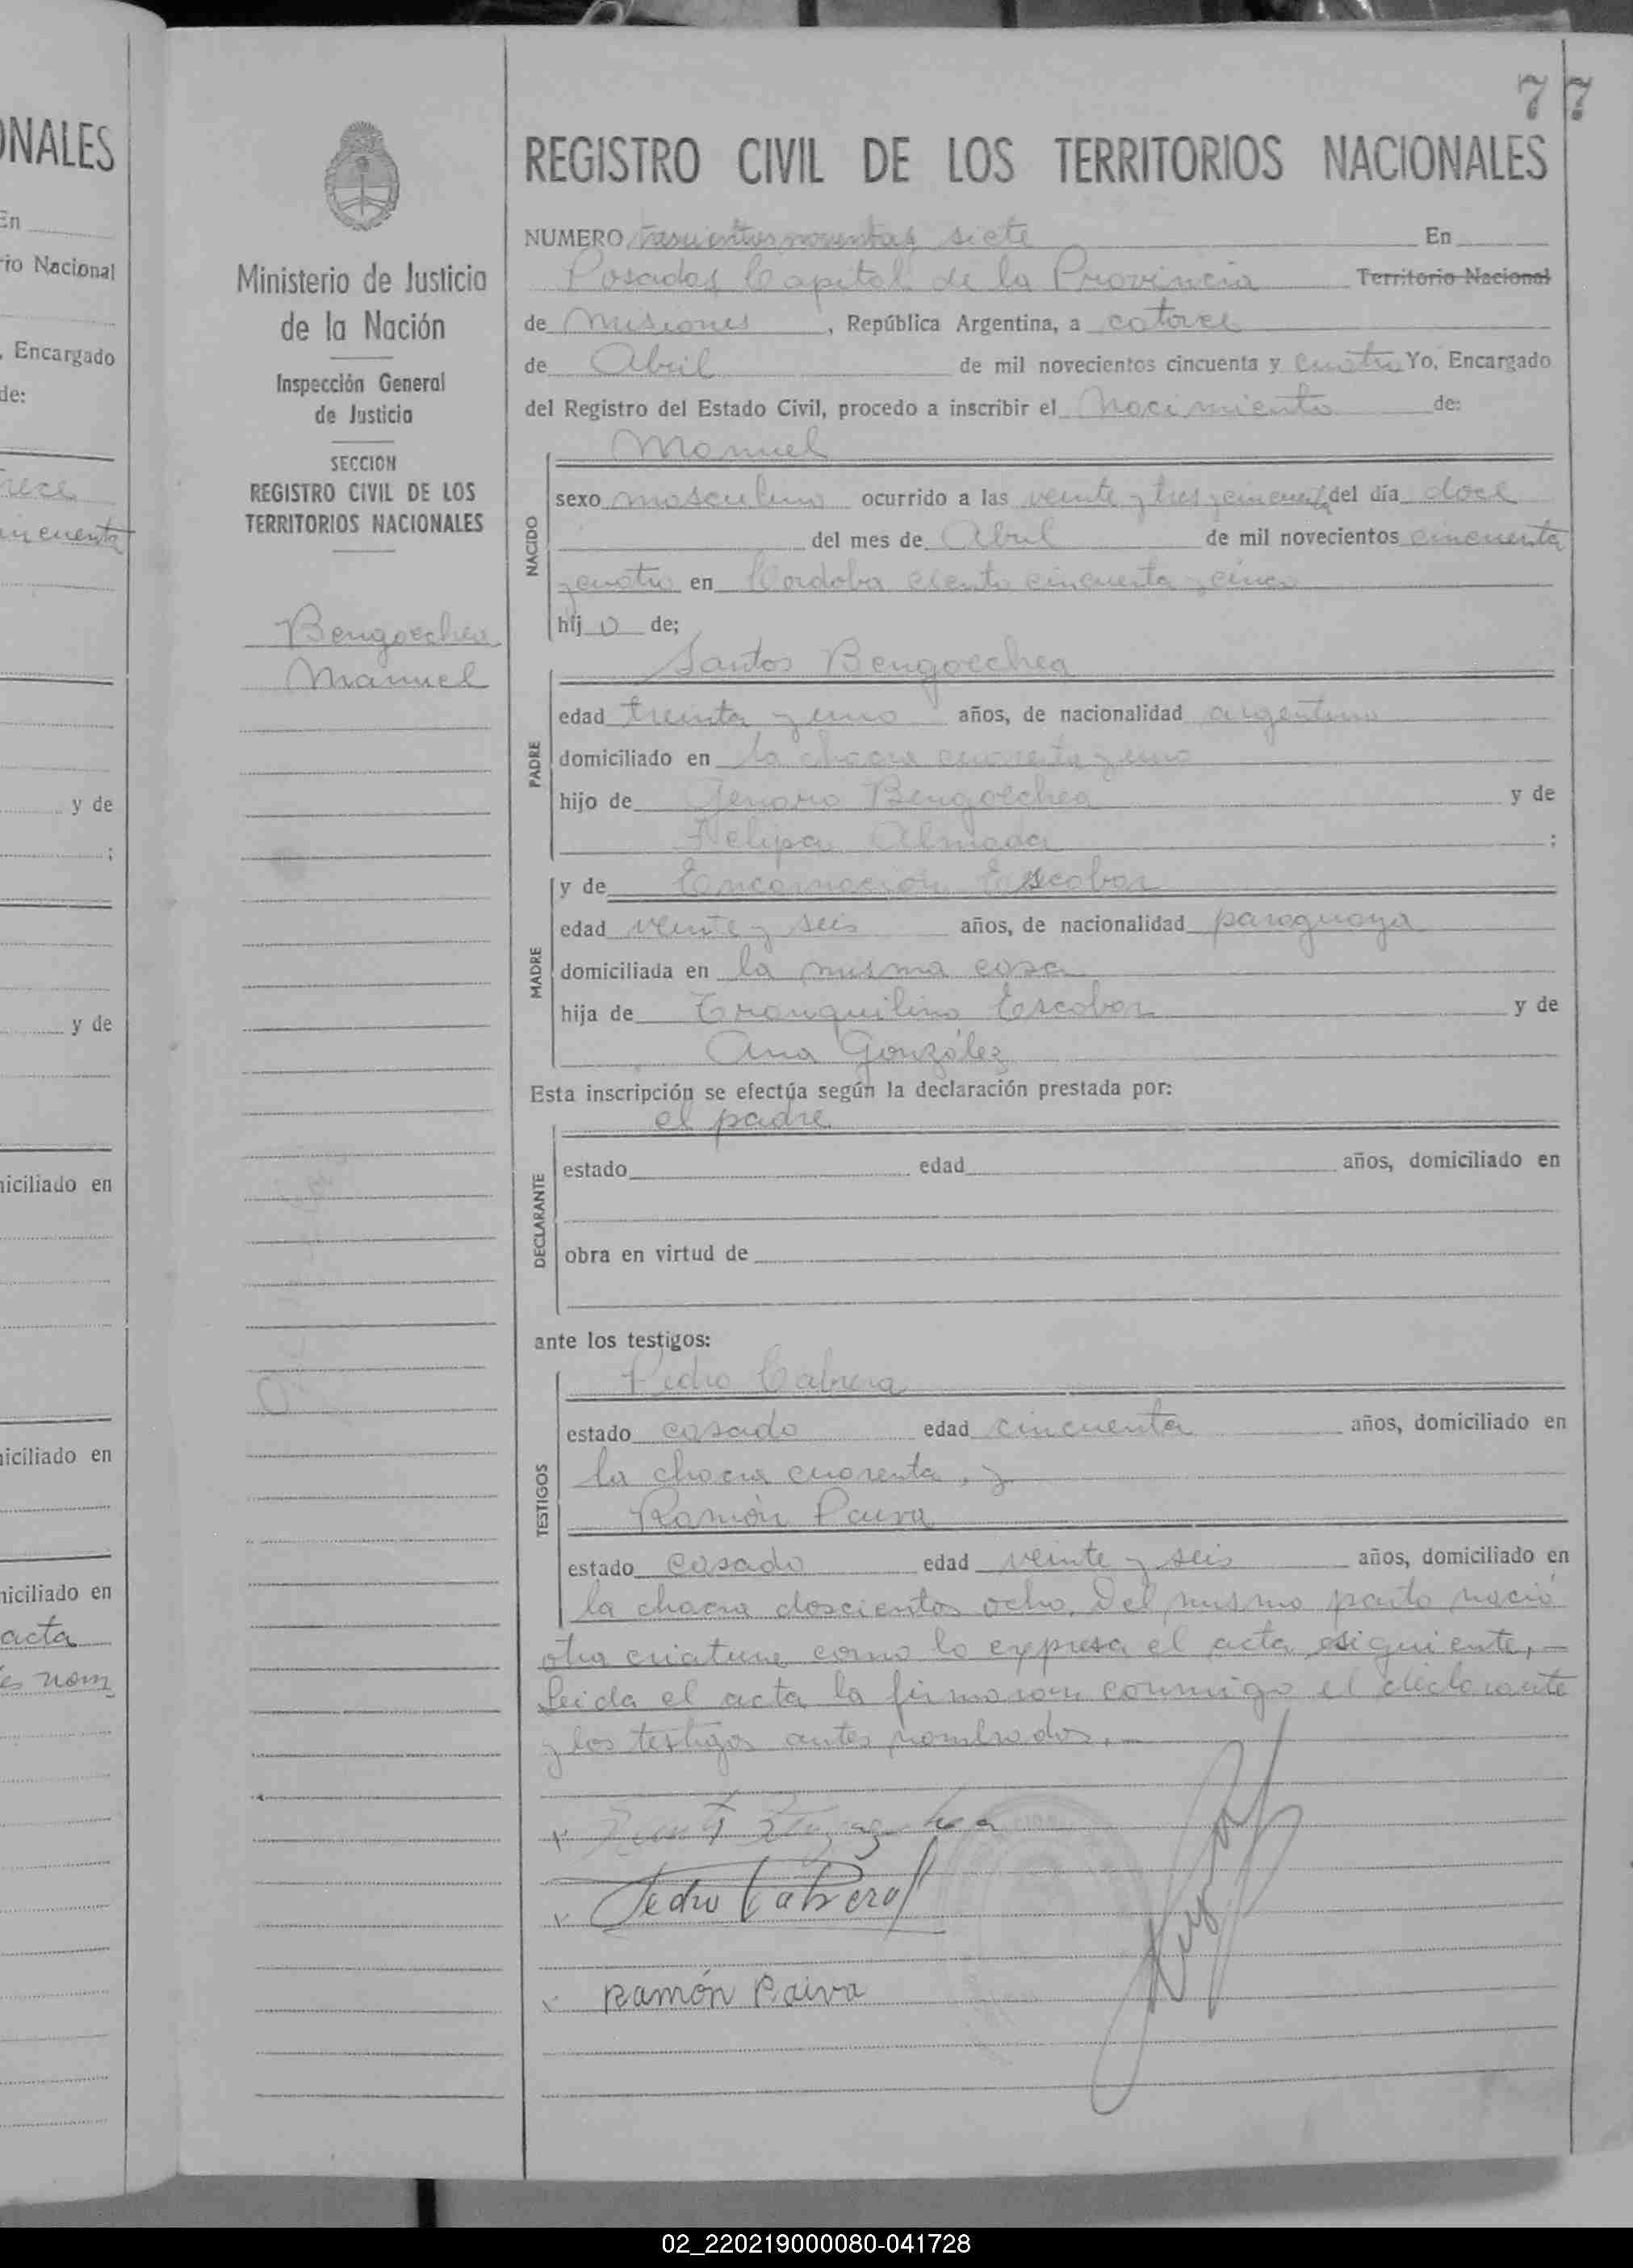 77
ONALES
En
rio Nacional
, Encargado
de:
rece
incuenta
y de
;
y de
niciliado en
niciliado en
niciliado en
acta
nom
Ministerio de Justicia
de la Nación
Inspección General
de Justicia
SECCION
REGISTRO CIVIL DE LOS
TERRITORIOS NACIONALES
Bengoechea
Manuel
REGISTRO CIVIL DE LOS TERRITORIOS NACIONALES
NUMERO trescientos noventa y siete En
Posadas Capital de la Provincia Territorio Nacional
de Misiones, República Argentina, a catorce
de Abril de mil novecientos cincuenta y cuatro Yo, Encargado
del Registro del Estado Civil, procedo a inscribir el Nacimiento de:
Manuel
NACIDO
sexo masculino ocurrido a las veinte y tres y cincuenta del día doce
del mes de Abril de mil novecientos cincuenta
y cuatro en Cordoba ciento cincuenta y cinco
hij o de;
Santos Bengoechea
PADRE
edad treinta y uno años, de nacionalidad argentino
domiciliado en la chacra cuarenta y uno
hijo de Genaro Bengoechea y de
Felipa Almada ;
y de Encarnación Escobar
MADRE
edad veinte y seis años, de nacionalidad paraguaya
domiciliada en la misma casa
hija de Tranquilino Escobar y de
Ana González
Esta inscripción se efectúa según la declaración prestada por:
el padre
DECLARANTE
estado edad años, domiciliado en
obra en virtud de
ante los testigos:
Pedro Cabrera
TESTIGOS
estado casado edad cincuenta años, domiciliado en
la chacra cuarenta, y
Ramón Paiva
estado casado edad veinte y seis años, domiciliado en
la chacra doscientos ocho. Del mismo parto nació
otra criatura como lo expresa el acta siguiente,
Leida el acta la firmaron conmigo el declarante
y los testigos antes nombrados.
Pedro Cabrera
Ramón Paiva
02_220219000080-041728